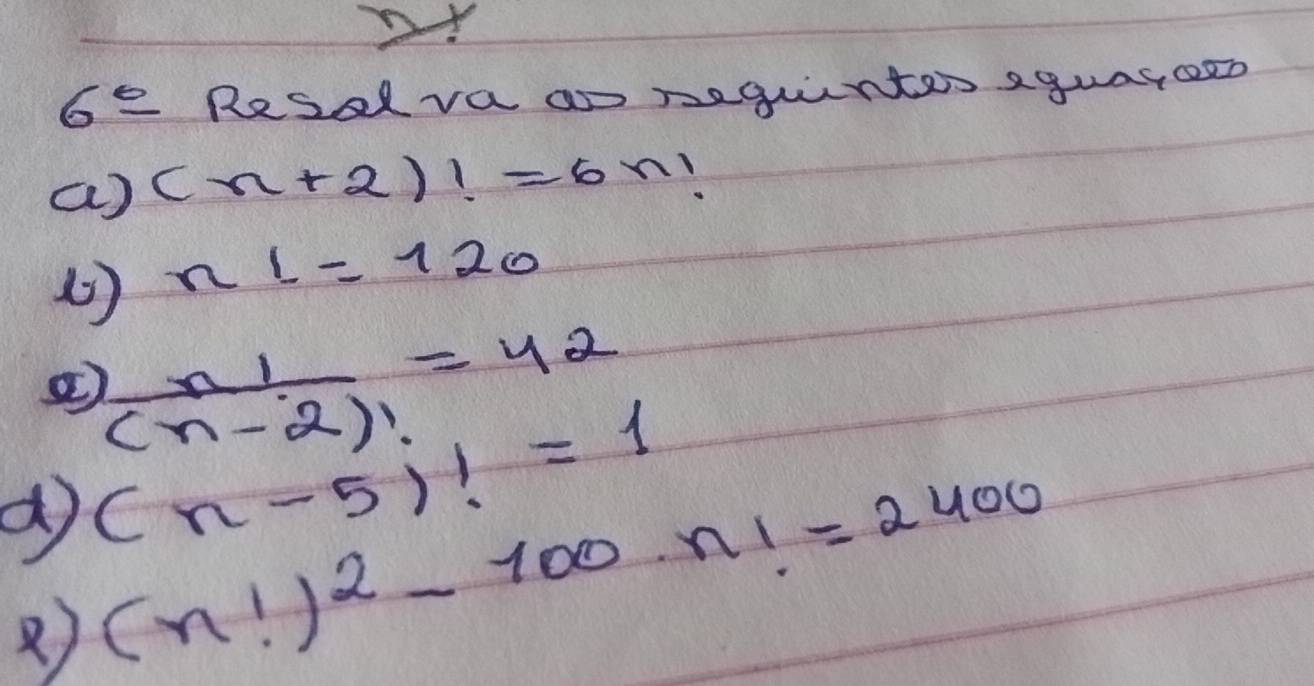 n!
6º Resolva as seguintes equações
a) (n+2)! = 6n!
b) n! = 120
c) n!/(n-2)! = 42
d) (n-5)! = 1
e) (n!)² - 100.n! = 2400